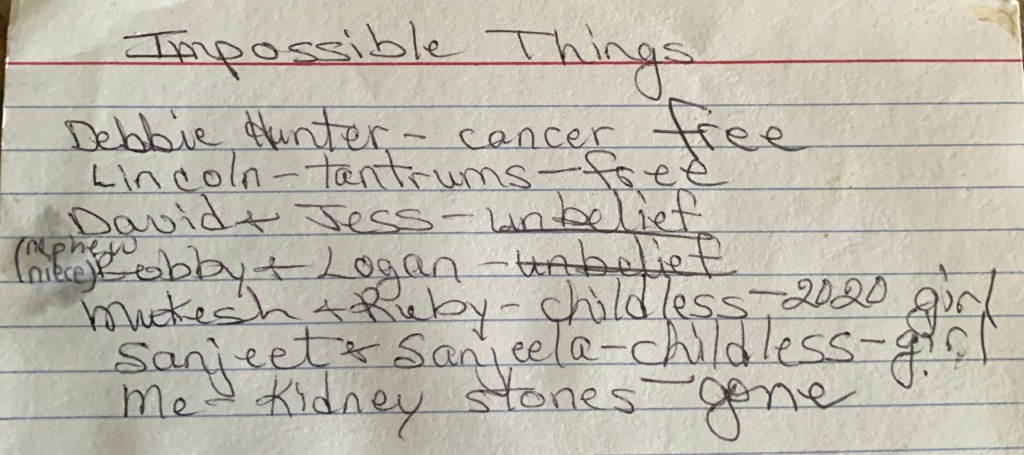 Impossible Things
Debbie Hunter - cancer free
Lincoln - tantrums - free
David + Jess - unbelief
(nephew
niece) Bobby + Logan - unbelief
Mukesh + Ruby - childless - 2020 girl
Sanjeet & Sanjeela - childless - girl
Me - Kidney stones - gone